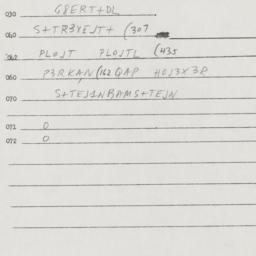 030 G8ERT+DL
040 S+TR3YEJT+ (307
062 PLOJT PLOJTL (435
060 P3RKAN(162 QAP HOJ3X3R
070 S+TEJ1NBAMS+TEJN
071 0
072 0